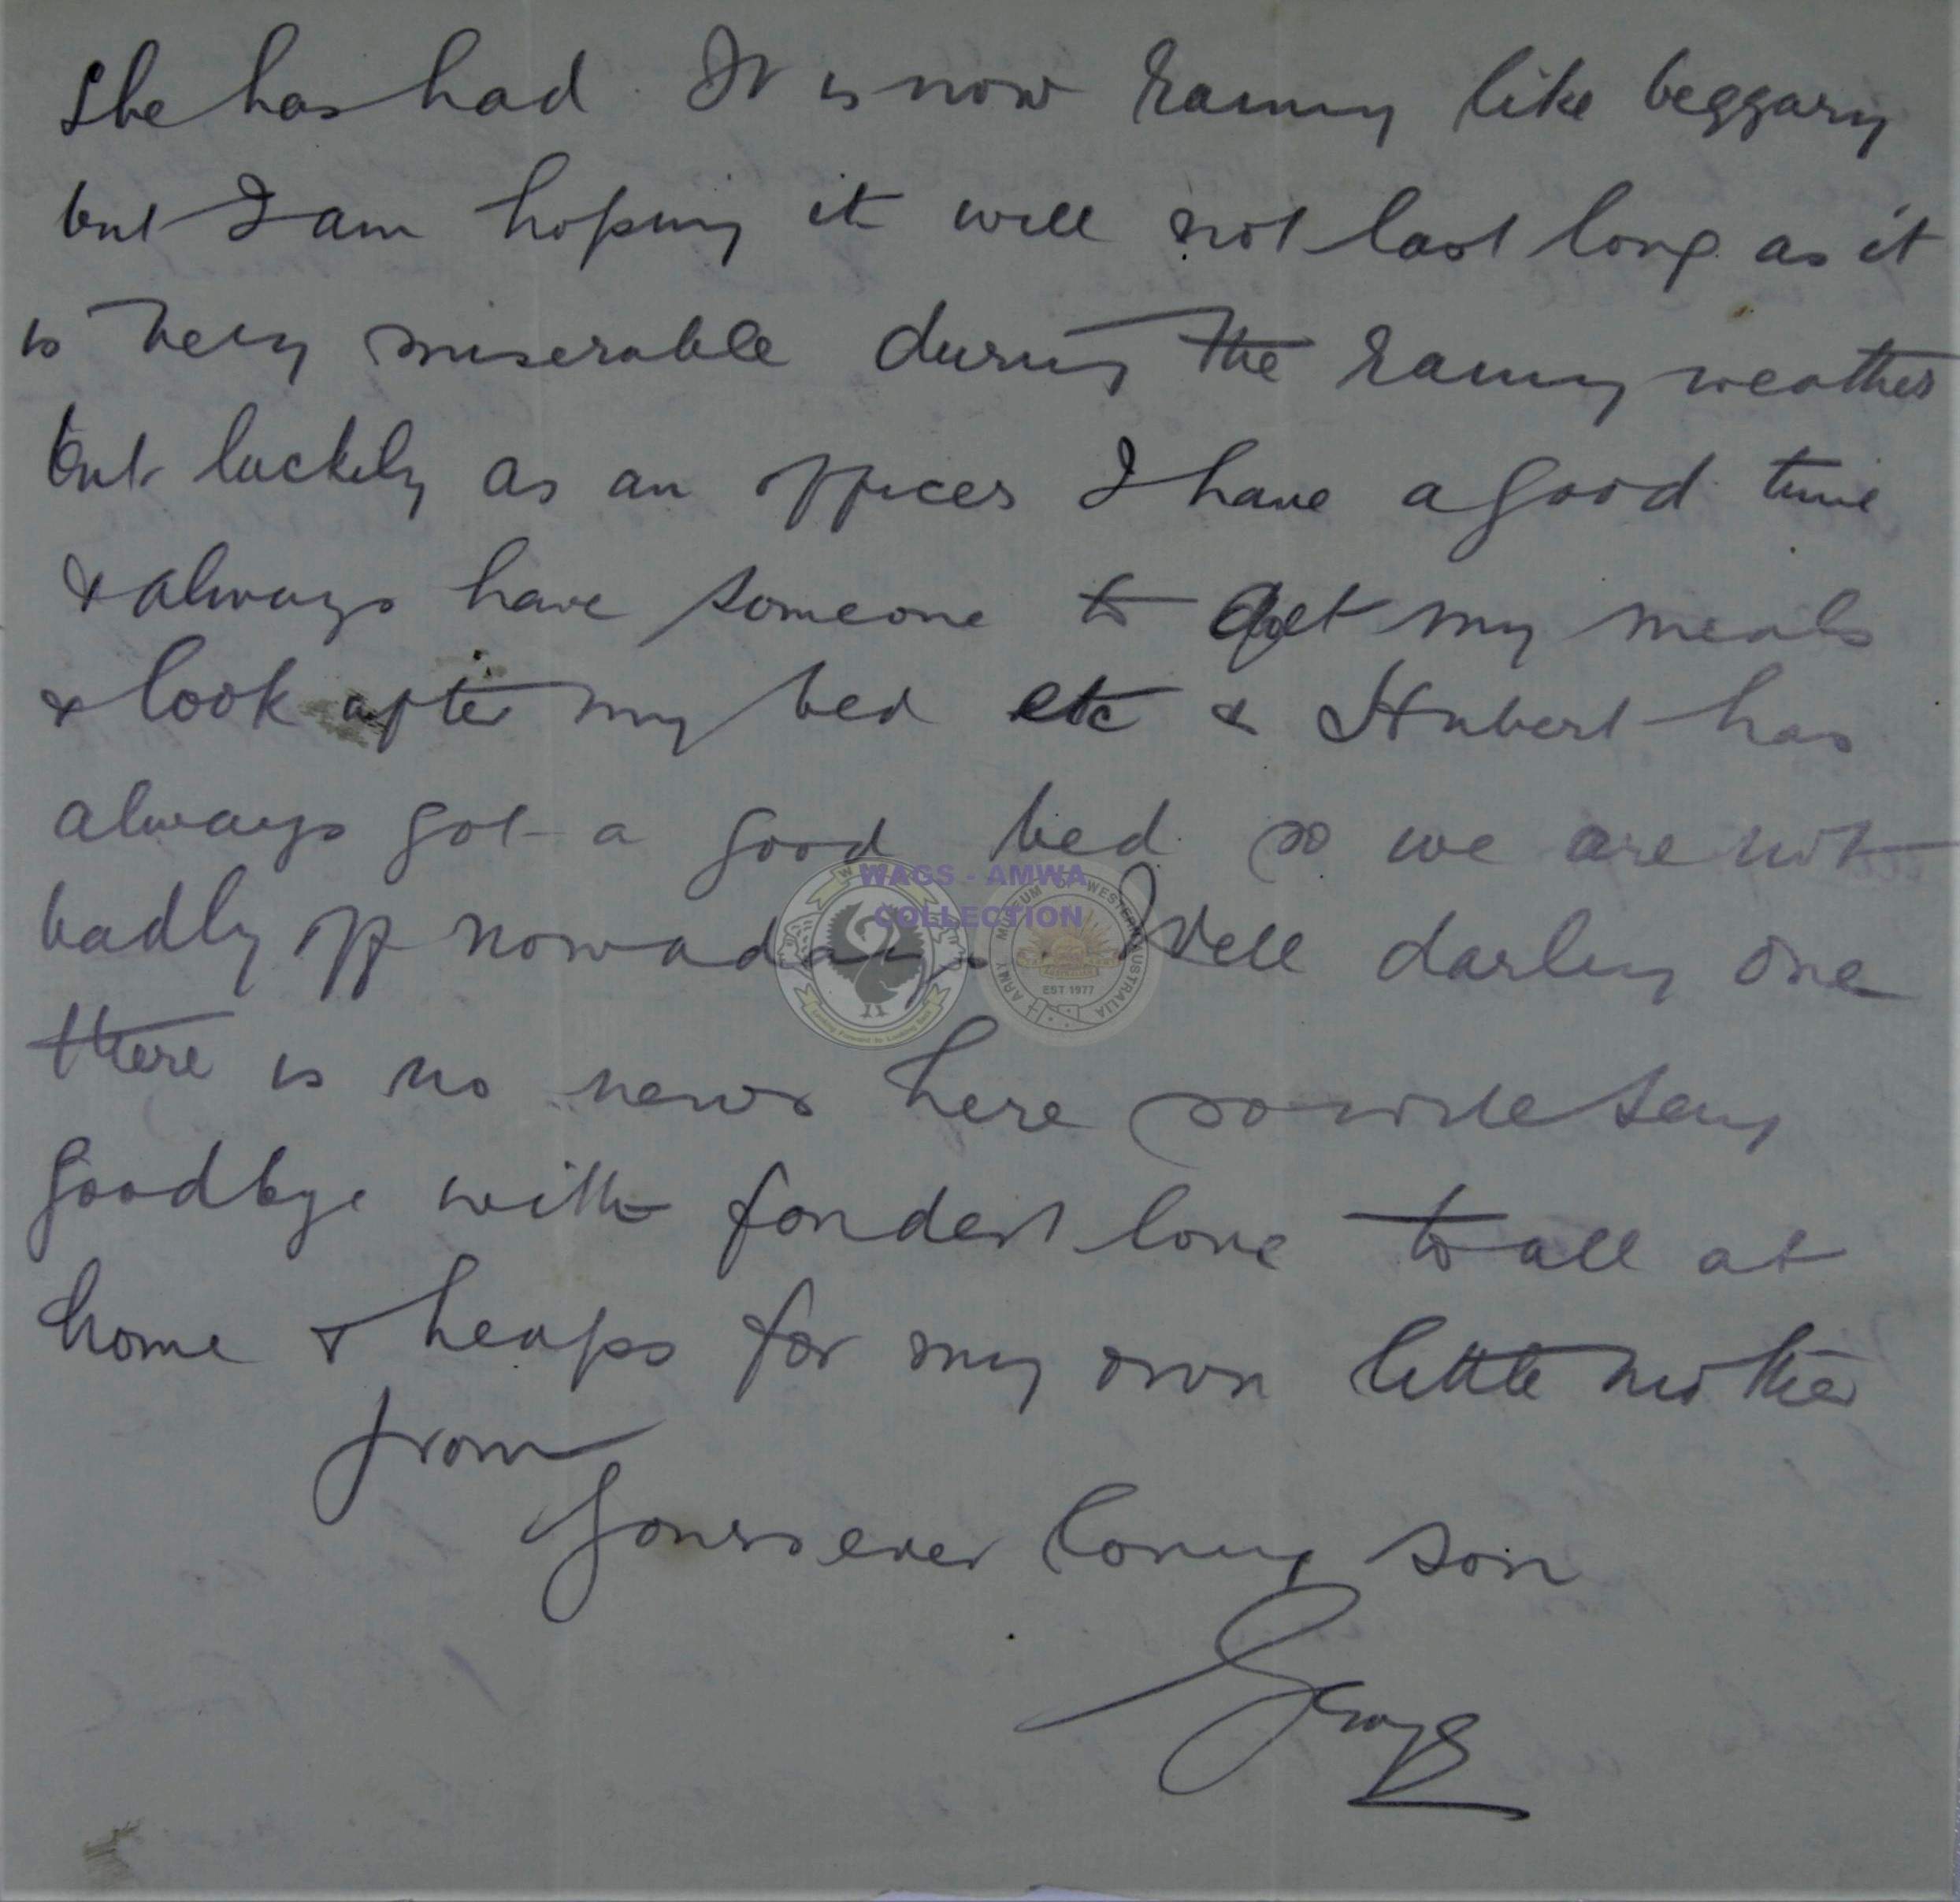 She has had. It is now rainy like beggary
but I am hoping it will not last long as it
is very miserable during the rainy weather
but luckily as an officer I have a good time
& always have someone to get my meals
& look after my bed etc & Hubert has
always got a good bed so we are not
badly off nowadays. Well darling one
there is no news here so will say
goodbye with fondest love to all at
home & heaps for my own little mother
from
Yours ever loving son
George
WAGS - AMWA
COLLECTION
ARMY MUSEUM OF WESTERN AUSTRALIA
EST 1977